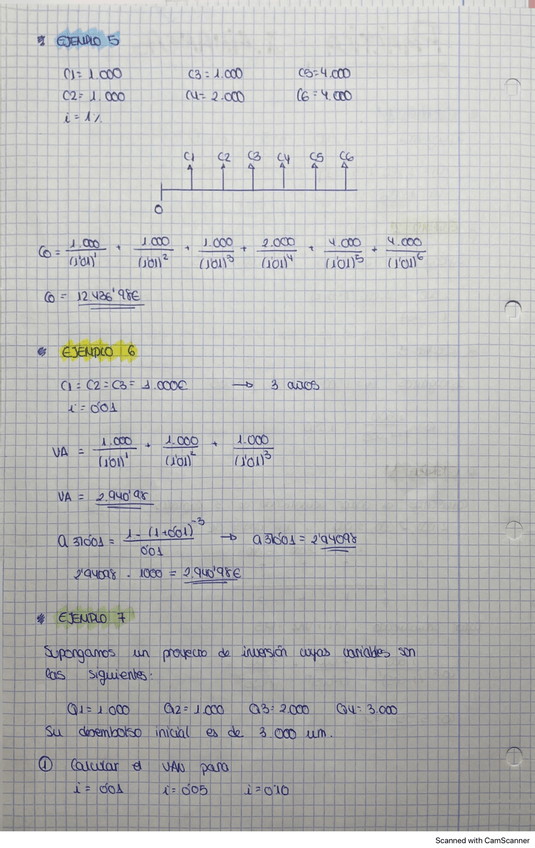 * EJEMPLO 5
C1 = 1.000 C3 = 1.000 C5 = 4.000
C2 = 1.000 C4 = 2.000 C6 = 4.000
i = 1%
C1 C2 C3 C4 C5 C6
0
C0 = 1.000/(1'01)^1 + 1.000/(1'01)^2 + 1.000/(1'01)^3 + 2.000/(1'01)^4 + 4.000/(1'01)^5 + 4.000/(1'01)^6
C0 = 12.436'98€
* EJEMPLO 6
C1 = C2 = C3 = 1.000€ → 3 años
i = 0'01
VA = 1.000/(1'01)^1 + 1.000/(1'01)^2 + 1.000/(1'01)^3
VA = 2.940'98
a 3┐0'01 = 1 - (1+0'01)^-3/0'01 → a 3┐0'01 = 2'94098
2'94098 · 1000 = 2.940'98€
* EJEMPLO 7
Supongamos un proyecto de inversión cuyas variables son
las siguientes:
Q1 = 1.000 Q2 = 1.000 Q3 = 2.000 Q4 = 3.000
Su desembolso inicial es de 3.000 um.
① Calcular el VAN para
i = 0'01 i = 0'05 i = 0'10
Scanned with CamScanner